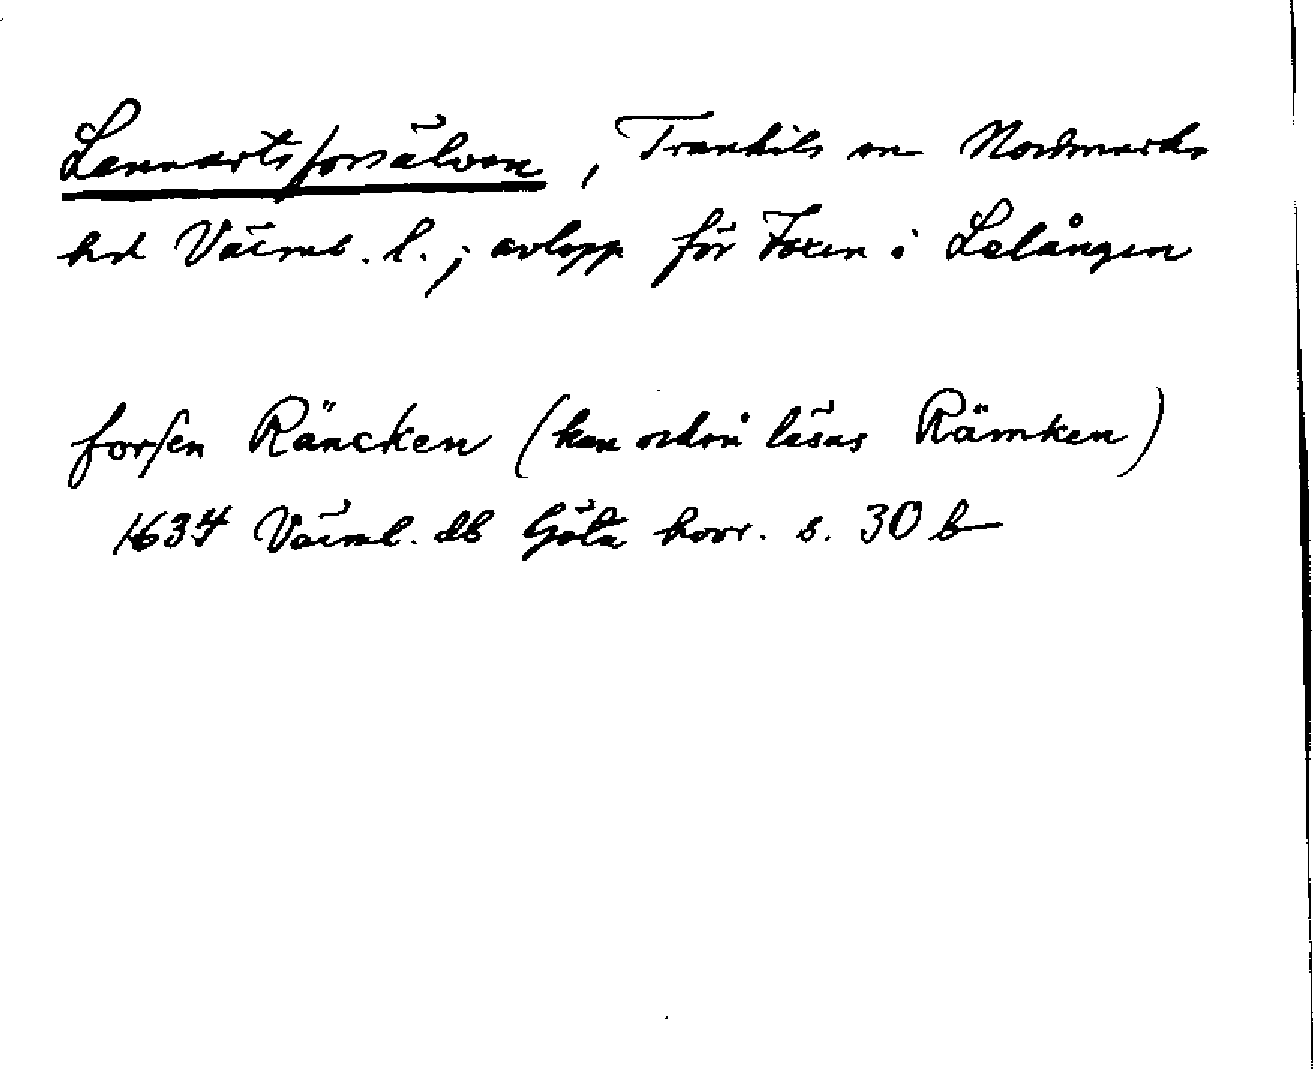 Lennartsforsälven, Trankils sn Nordmarks
hd Värml. l.; avlopp för Foxen i Lelången
forsen Räncken (kan också läsas Rämken)
1634 Värml. db Göta hovr. s. 30 b